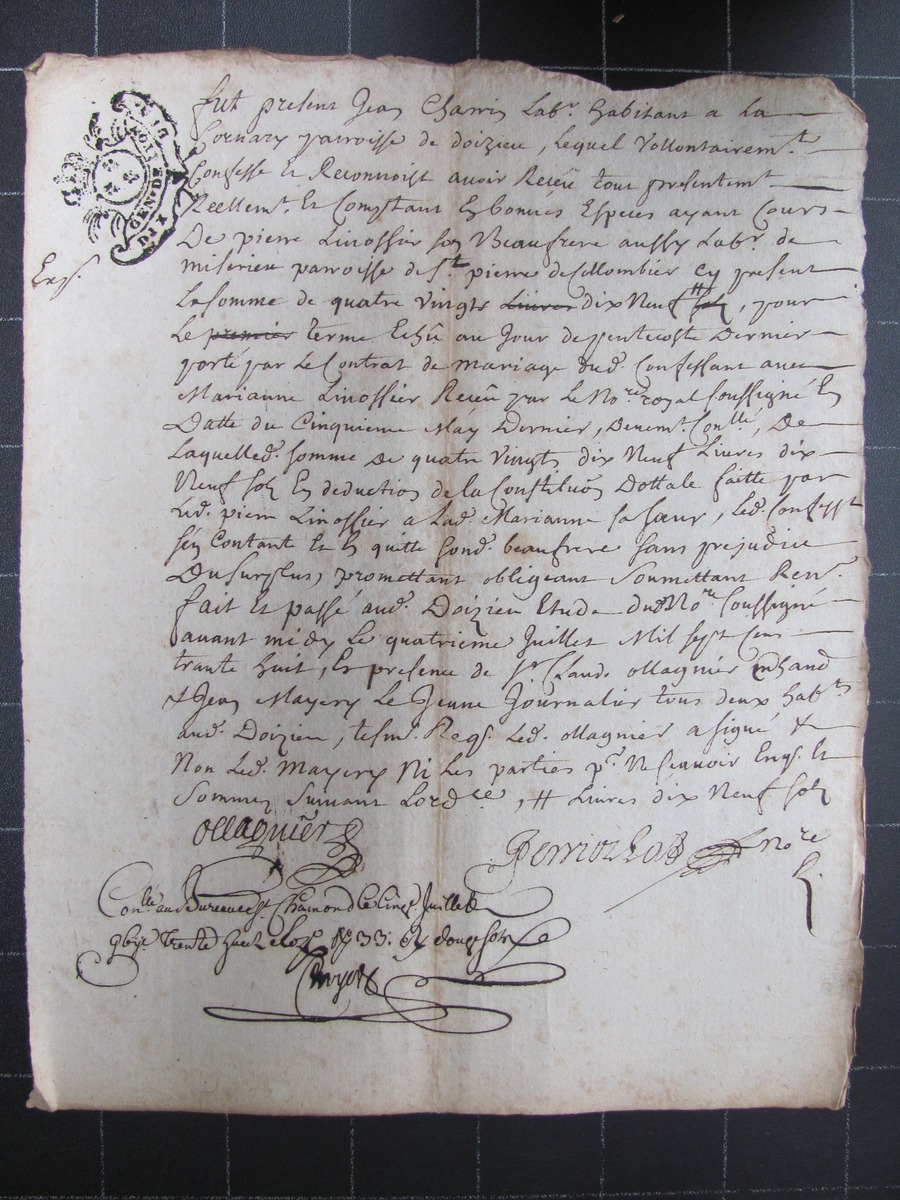 fut present Jean Charrin Labr. habitant a La
Cornary parroisse de doizieu, lequel vollontairemt.
Confesse et Reconnoist avoir Reçeu tout presentemt.
Reellemt. Et Comptant En bonnes Especes ayant Cours
De pierre Linossier son Beaufrere aussy Labr. de
Exp.
miserieu parroisse de St. pierre de Collombier Cy present
La somme de quatre vingts Livres dix Neuf ₶ sols, pour
Le premier terme Echû au Jour de pentecoste Dernier
porté par le Contrat de Mariage dud. Confessant avec
Marianne Linossier Reçeu par Le Nore. royal soussigné En
Datte du Cinquieme May Dernier, Deuemt. Conllé, De
Laquelled. somme De quatre Vingts dix Neuf Livres dix
Neuf sols En deduction de la Constituõn Dottale faitte par
Led. pierre Linossier a Lad. Marianne sa sœur, Led. Confesst
s'en Contant Et En quitte sond. beaufrere sans prejudice
Du surplus, promettant obligeant soumettant Renx.
fait Et passé aud. Doizieu Etude dud. Nore. soussigné
avant midy Le quatrieme Juillet Mil sept Cens
trante huit, En presence de Sr. Claude ollagnier mhand
& Jean Mayery Le Jeune Journalier tous deux habts
aud. Doizieu, tesm. Reqs. Led. ollagnier a signé &
Non Led. Mayery Ni Les parties pr. Ne scavoir Enqs. Et
Sommes suivant Lordce, ₶ Livres dix Neuf sols
ollagnier
Perriolat Nore
Conllé au Bureau de St Chamond le cinq. Juillet
trente huit douze sols
GEN. DE LION
DIX